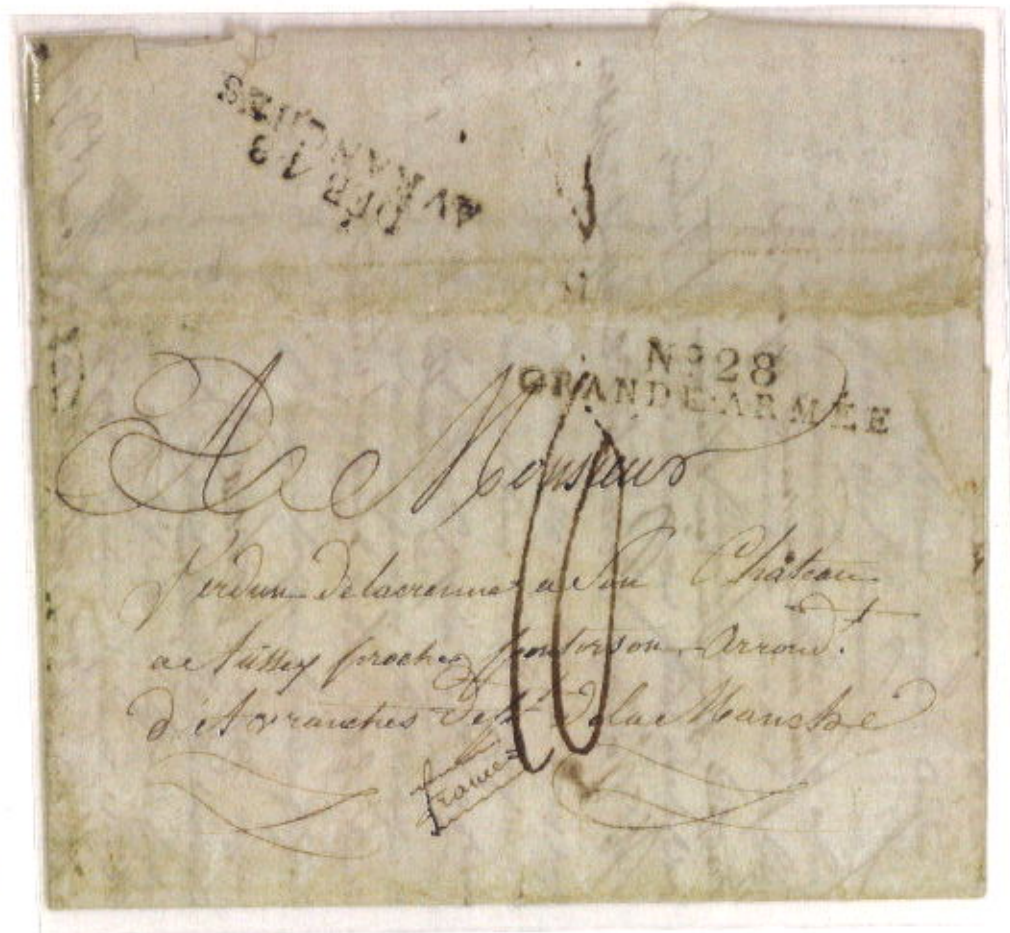 DEB 48
AVRANCHES
No 28
GRANDE-ARMÉE
A Monsieur
Verdun Delacrenne a Son Château
a aussey proche pontorson arrond.t
d'Avranches Dept Dela Manche
france
10